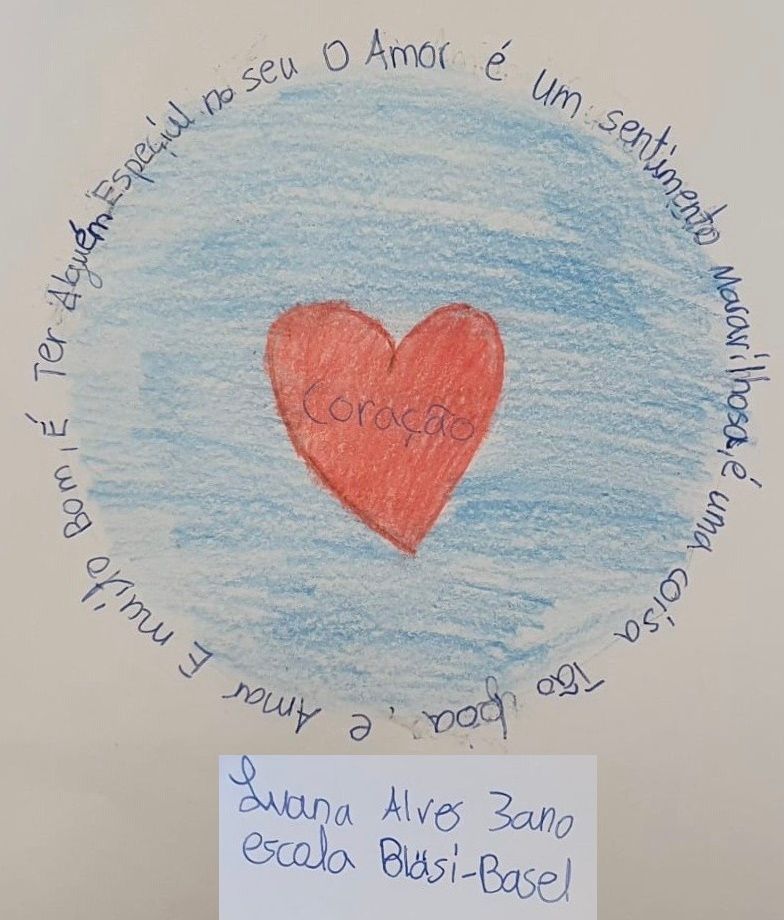 O Amor é um sentimento Mararilhosa, é uma coisa Tão boa, e Amar E muito Bom, É Ter Alguém Espeçial no seu
Coração
Luana Alves 3ano
escola Bläsi-Basel